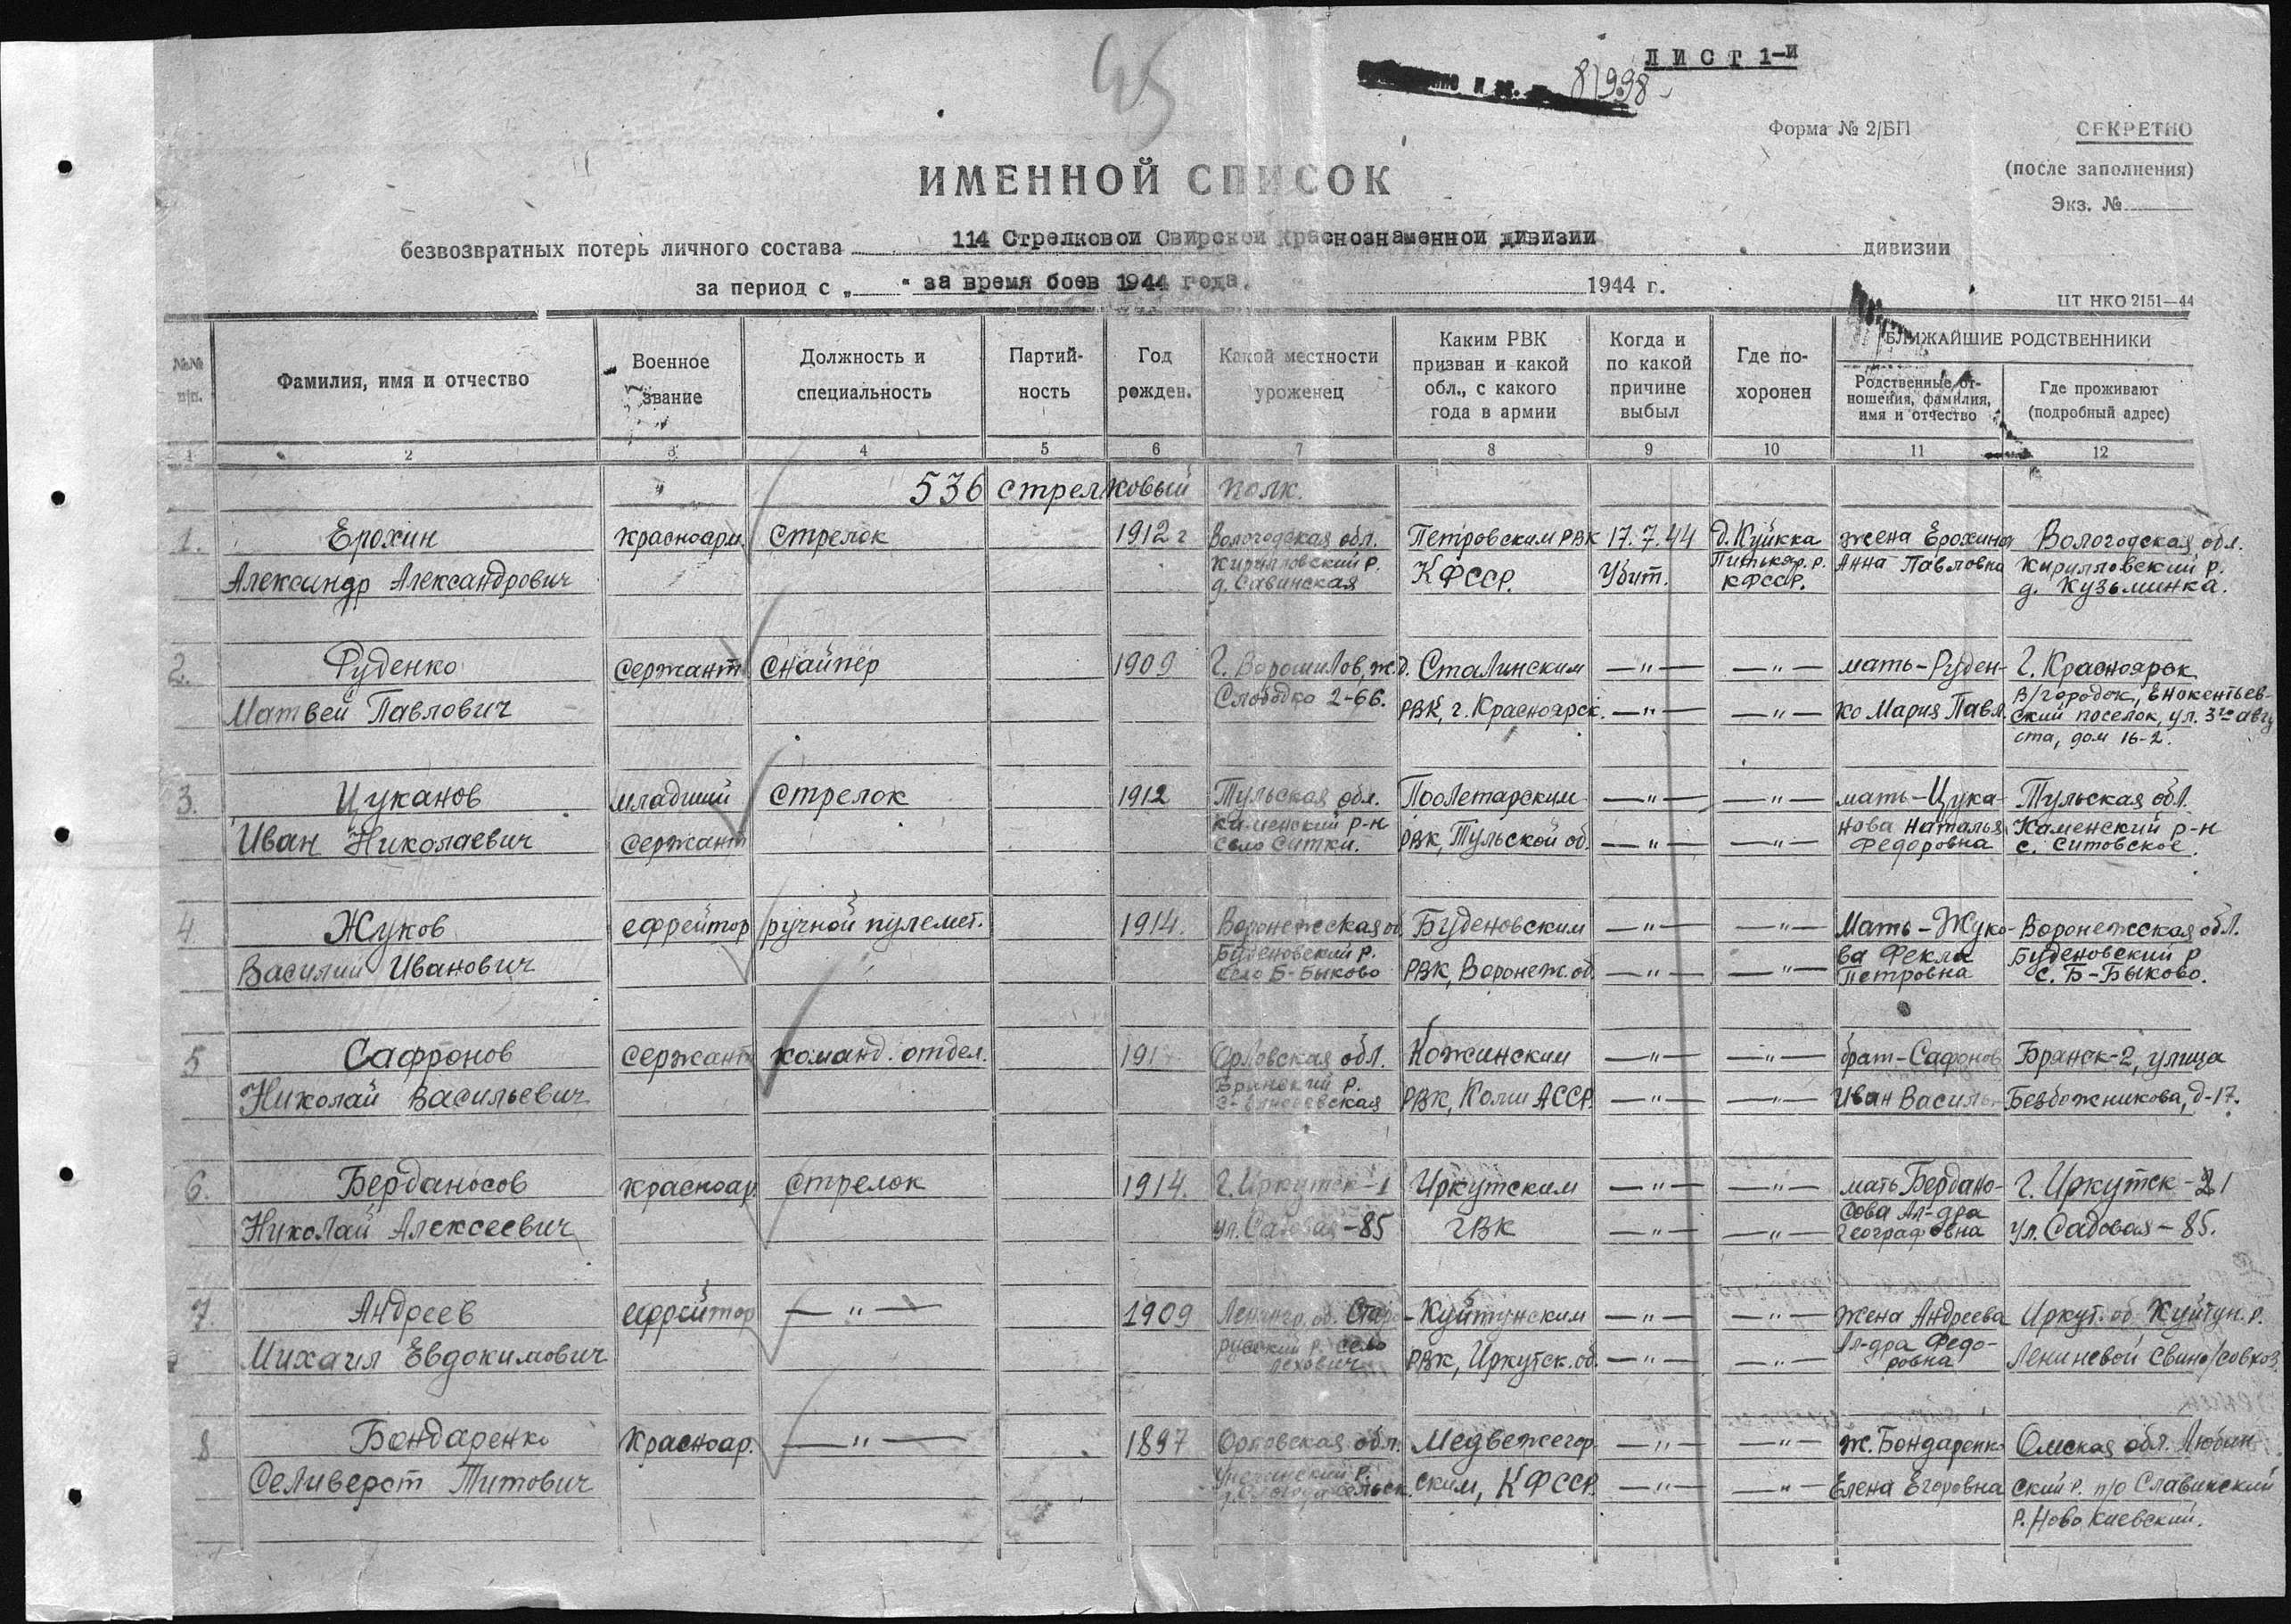 45
ЛИСТ 1-й
81998
Форма № 2/БП
СЕКРЕТНО
(после заполнения)
Экз. №
ИМЕННОЙ СПИСОК
безвозвратных потерь личного состава 114 Стрелковой Свирской Краснознаменной дивизии дивизии
за период с „ “ за время боев 1944 года. 1944 г.
ЦТ НКО 2151—44
№№ п/п. | Фамилия, имя и отчество | Военное звание | Должность и специальность | Партий-ность | Год рожден. | Какой местности уроженец | Каким РВК призван и какой обл., с какого года в армии | Когда и по какой причине выбыл | Где по-хоронен | БЛИЖАЙШИЕ РОДСТВЕННИКИ
Родственные от-ношения, фамилия, имя и отчество | Где проживают (подробный адрес)
1 2 3 4 5 6 7 8 9 10 11 12
536 стрелковый полк.
1. Ерохин красноарм. Стрелок 1912 г Вологодская обл. Петровским РВК 17.7.44 д. Куйкка жена Ерохина Вологодская обл.
Александр Александрович Кирилловский р. КФССР. Убит. Питкяр. р. Анна Павловна Кирилловский р.
д. Савинская КФССР. д. Кузьминка.
2. Руденко Сержант Снайпер 1909 Г. Ворошилов, ж.д. Сталинским —"— —"— мать-Руден- Г. Красноярск
Матвей Павлович Слободка 2-66. РВК, г. Красноярск. —"— —"— ко Мария Павл. В/городок, Енокентьев-
ский поселок, ул. 3го авгу
ста, дом 16-2.
3. Цуканов младший стрелок 1912 Тульская обл. Поолетарским —"— —"— мать-Цука- Тульская обл.
Иван Николаевич сержант Каменский р-н РВК, Тульской об. —"— —"— нова Наталья Каменский р-н
село Ситки. Федоровна с. Ситовское.
4. Жуков ефрейтор ручной пулемет. 1914. Воронежская об. Буденовским —"— —"— Мать-Жуко- Воронежская обл.
Василий Иванович Буденовский р. РВК, Воронеж. об. —"— —"— ва Фекла Буденовский р
село Б-Быково Петровна с. Б-Быково.
5 Сафронов Сержант команд. отдел. 191 Орловская обл. Кожинским —"— —"— брат-Сафонов Брянск-2, улица
Николай Васильевич Брянский р. РВК, Коми АССР. —"— —"— Иван Василь Безбожникова, д-17.
6. Берданосов красноар. стрелок 1914. г. Иркутск-1 Иркутским —"— —"— мать Бердано- г. Иркутск-21
Николай Алексеевич ул. Садовая-85 ГВК —"— —"— сова Ал-дра ул. Садовая-85.
Географовна
7. Андреев ефрейтор —"— 1909 Ленингр. об. Старо- Куйтунским —"— —"— жена Андреева Иркут. об Куйтун. р.
Михаил Евдокимович русский р. село РВК, Иркутск. об. —"— —"— Ал-дра Федо- Лениневой Свино/совхоз.
Лехович ровна
8 Бондаренко Красноар. —"— 1897 Орловская обл. Медвежегор- —"— —"— ж. Бондаренко Омская обл. Любин
Селиверст Титович ским, КФССР. —"— —"— Елена Егоровна ский р. п/о Славинский
Р. Ново Киевский.